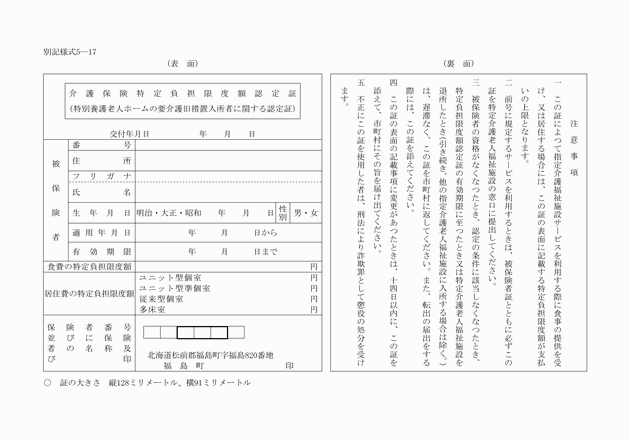 別記様式5―17
（表　面）
介護保険特定負担限度額認定証
(特別養護老人ホームの要介護旧措置入所者に関する認定証)
交付年月日　　　年　　月　　日
被保険者
番号
住所
フリガナ
氏名
生年月日　明治・大正・昭和　　年　　月　　日　性別　男・女
適用年月日　　　年　　月　　日から
有効期限　　　年　　月　　日まで
食費の特定負担限度額　円
居住費の特定負担限度額
ユニット型個室　円
ユニット型準個室　円
従来型個室　円
多床室　円
保険者番号
並びに保険
者の名称及
び印
北海道松前郡福島町字福島820番地
福島町　印
○　証の大きさ　縦128ミリメートル、横91ミリメートル
（裏　面）
注意事項
一　この証によつて指定介護福祉施設サービスを利用する際に食事の提供を受
け、又は居住する場合には、この証の表面に記載する特定負担限度額が支払
いの上限となります。
二　前号に規定するサービスを利用するときは、被保険者証とともに必ずこの
証を特定介護老人福祉施設の窓口に提出してください。
三　被保険者の資格がなくなつたとき、認定の条件に該当しなくなつたとき、
特定負担限度額認定証の有効期限に至つたとき又は特定介護老人福祉施設を
退所したとき(引き続き、他の指定介護老人福祉施設に入所する場合は除く。)
は、遅滞なく、この証を市町村に返してください。また、転出の届出をする
際には、この証を添えてください。
四　この証の表面の記載事項に変更があつたときは、十四日以内に、この証を
添えて、市町村にその旨を届け出てください。
五　不正にこの証を使用した者は、刑法により詐欺罪として懲役の処分を受け
ます。